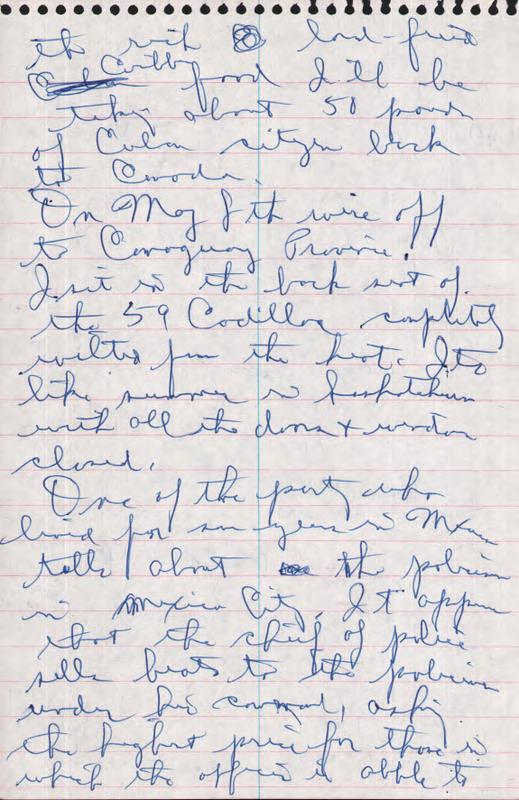 the rich lard-fried
Cuban food I'll be
taking about 50 pounds
of Cuban citizen back
to Canada.
On May 8th we're off
to Camaguay Province!
I sit in the back seat of
the 59 Cadillac completely
wilted from the heat. Its
like summer in Saskatchewan
with all the doors + windows
closed.
One of the party who
lived for years in Mexico
tells about the policeman
in Mexico City. It appears
that the chief of police
sells beats to the policemen
under his command, asking
the highest price for those in
which the officer is able to